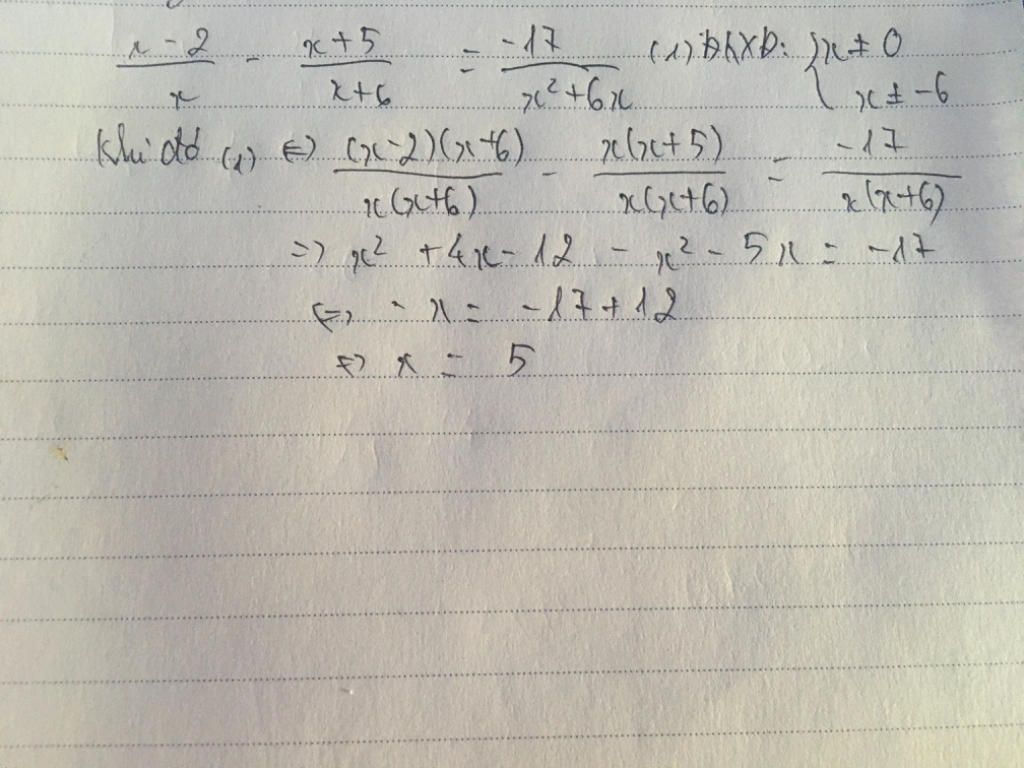 (x-2)/x - (x+5)/(x+6) = -17/(x²+6x) (1) ĐKXĐ: { x ≠ 0
x ≠ -6
Khi đó (1) ⇔ (x-2)(x+6)/x(x+6) - x(x+5)/x(x+6) = -17/x(x+6)
=> x² + 4x - 12 - x² - 5x = -17
⇔ - x = -17 + 12
⇔ x = 5